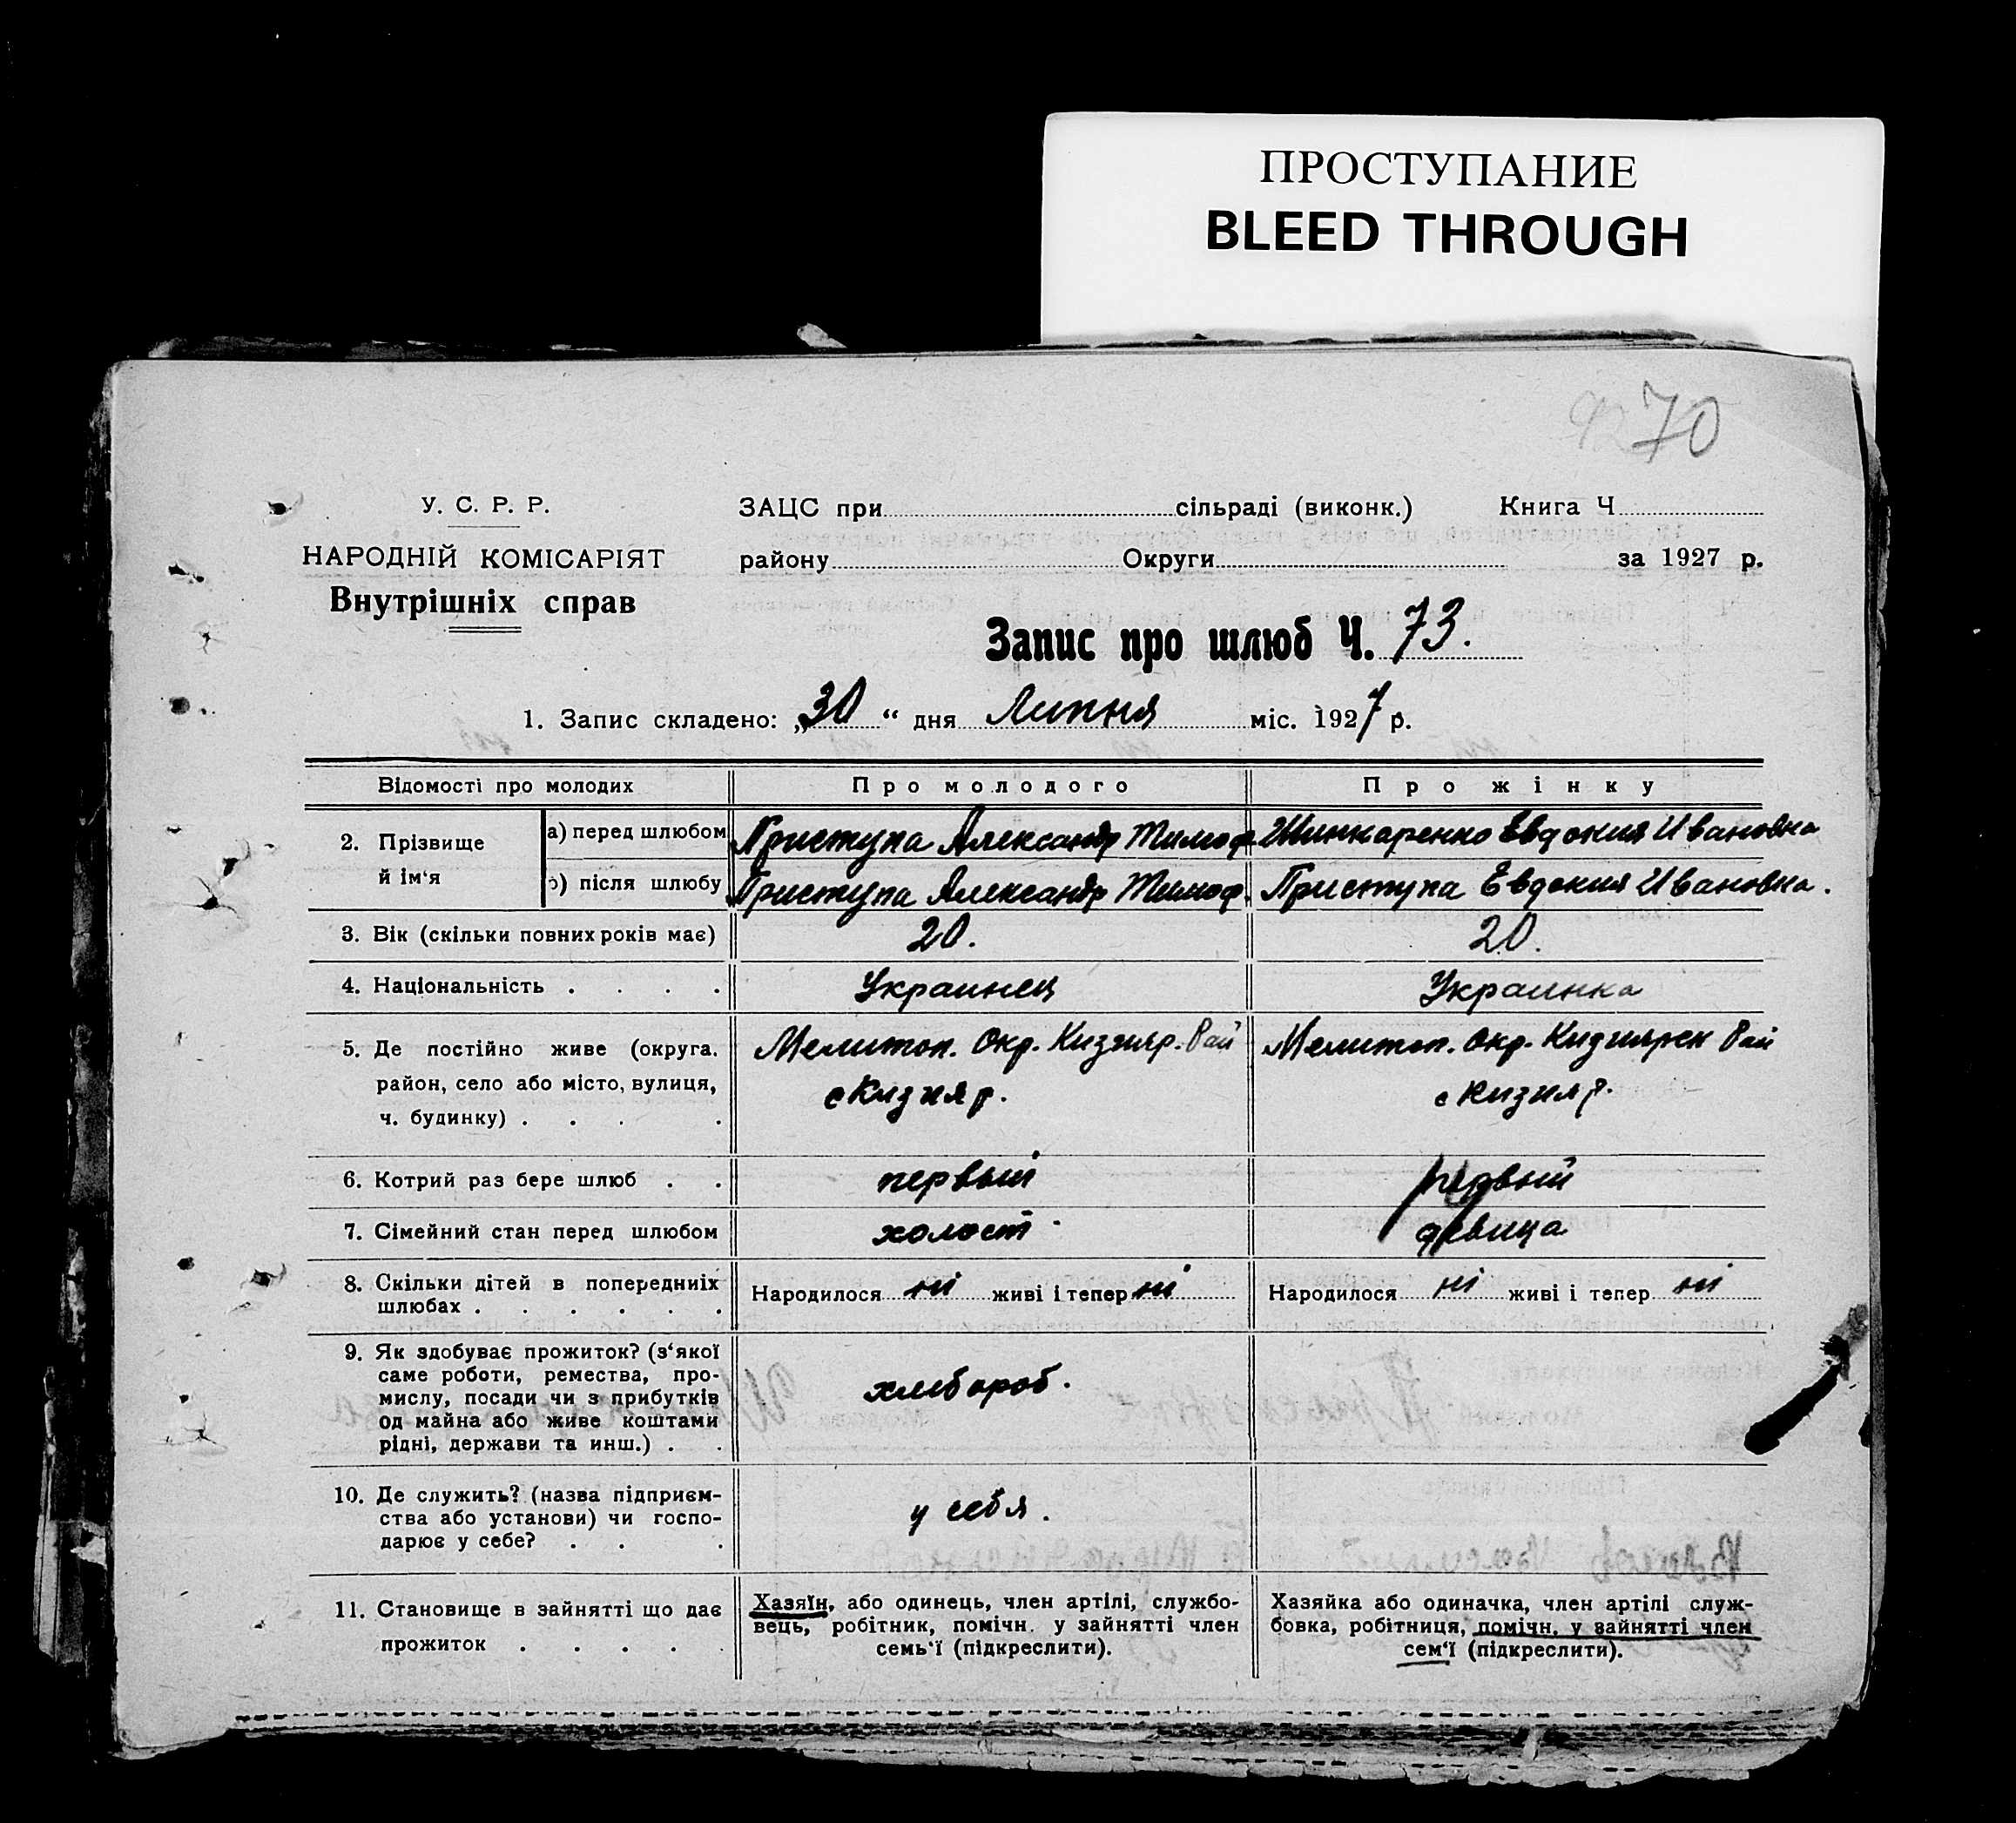 ПРОСТУПАНИЕ
BLEED THROUGH
70
У. С. Р. Р.
НАРОДНІЙ КОМІСАРІЯТ
Внутрішніх справ
ЗАЦС при сільраді (виконк.) Книга Ч
району Округи за 1927 р.
Запис про шлюб Ч. 73.
1. Запис складено: „30“ дня Липня міс. 1927 р.
Відомості про молодих
Про молодого
Про жінку
2. Прізвище й ім‘я
а) перед шлюбом
Приступа Александр Тимоф
Шинкаренко Евдокия Ивановна
б) після шлюбу
Приступа Александр Тимоф.
Приступа Евдокия Ивановна.
3. Вік (скільки повних років має)
20.
20.
4. Національність . . . .
Украинец
Украинка
5. Де постійно живе (округа.
район, село або місто, вулиця,
ч. будинку) . . . .
Мелитоп. Окр. Кизияр. Рай
с Кизияр.
Мелитоп. Окр. Кизиярск Рай
с Кизияр.
6. Котрий раз бере шлюб . .
первый
первый
7. Сімейний стан перед шлюбом
холост
девица
8. Скільки дітей в попередниіх
шлюбах . . . . . .
Народилося ні живі і тепер ні
Народилося ні живі і тепер ні
9. Як здобуває прожиток? (з‘якої
саме роботи, ремества, про-
мислу, посади чи з прибутків
од майна або живе коштами
рідні, держави та инш.) . .
хлебороб.
10. Де служить? (назва підприєм-
ства або установи) чи госпо-
дарює у себе? . . .
у себя.
11. Становище в зайнятті що дає
прожиток . . . .
Хазяїн, або одинець, член артілі, службо-
вець, робітник, помічн. у зайнятті член
семь‘ї (підкреслити).
Хазяйка або одиначка, член артілі служ-
бовка, робітниця, помічн. у зайнятті член
сем‘ї (підкреслити).